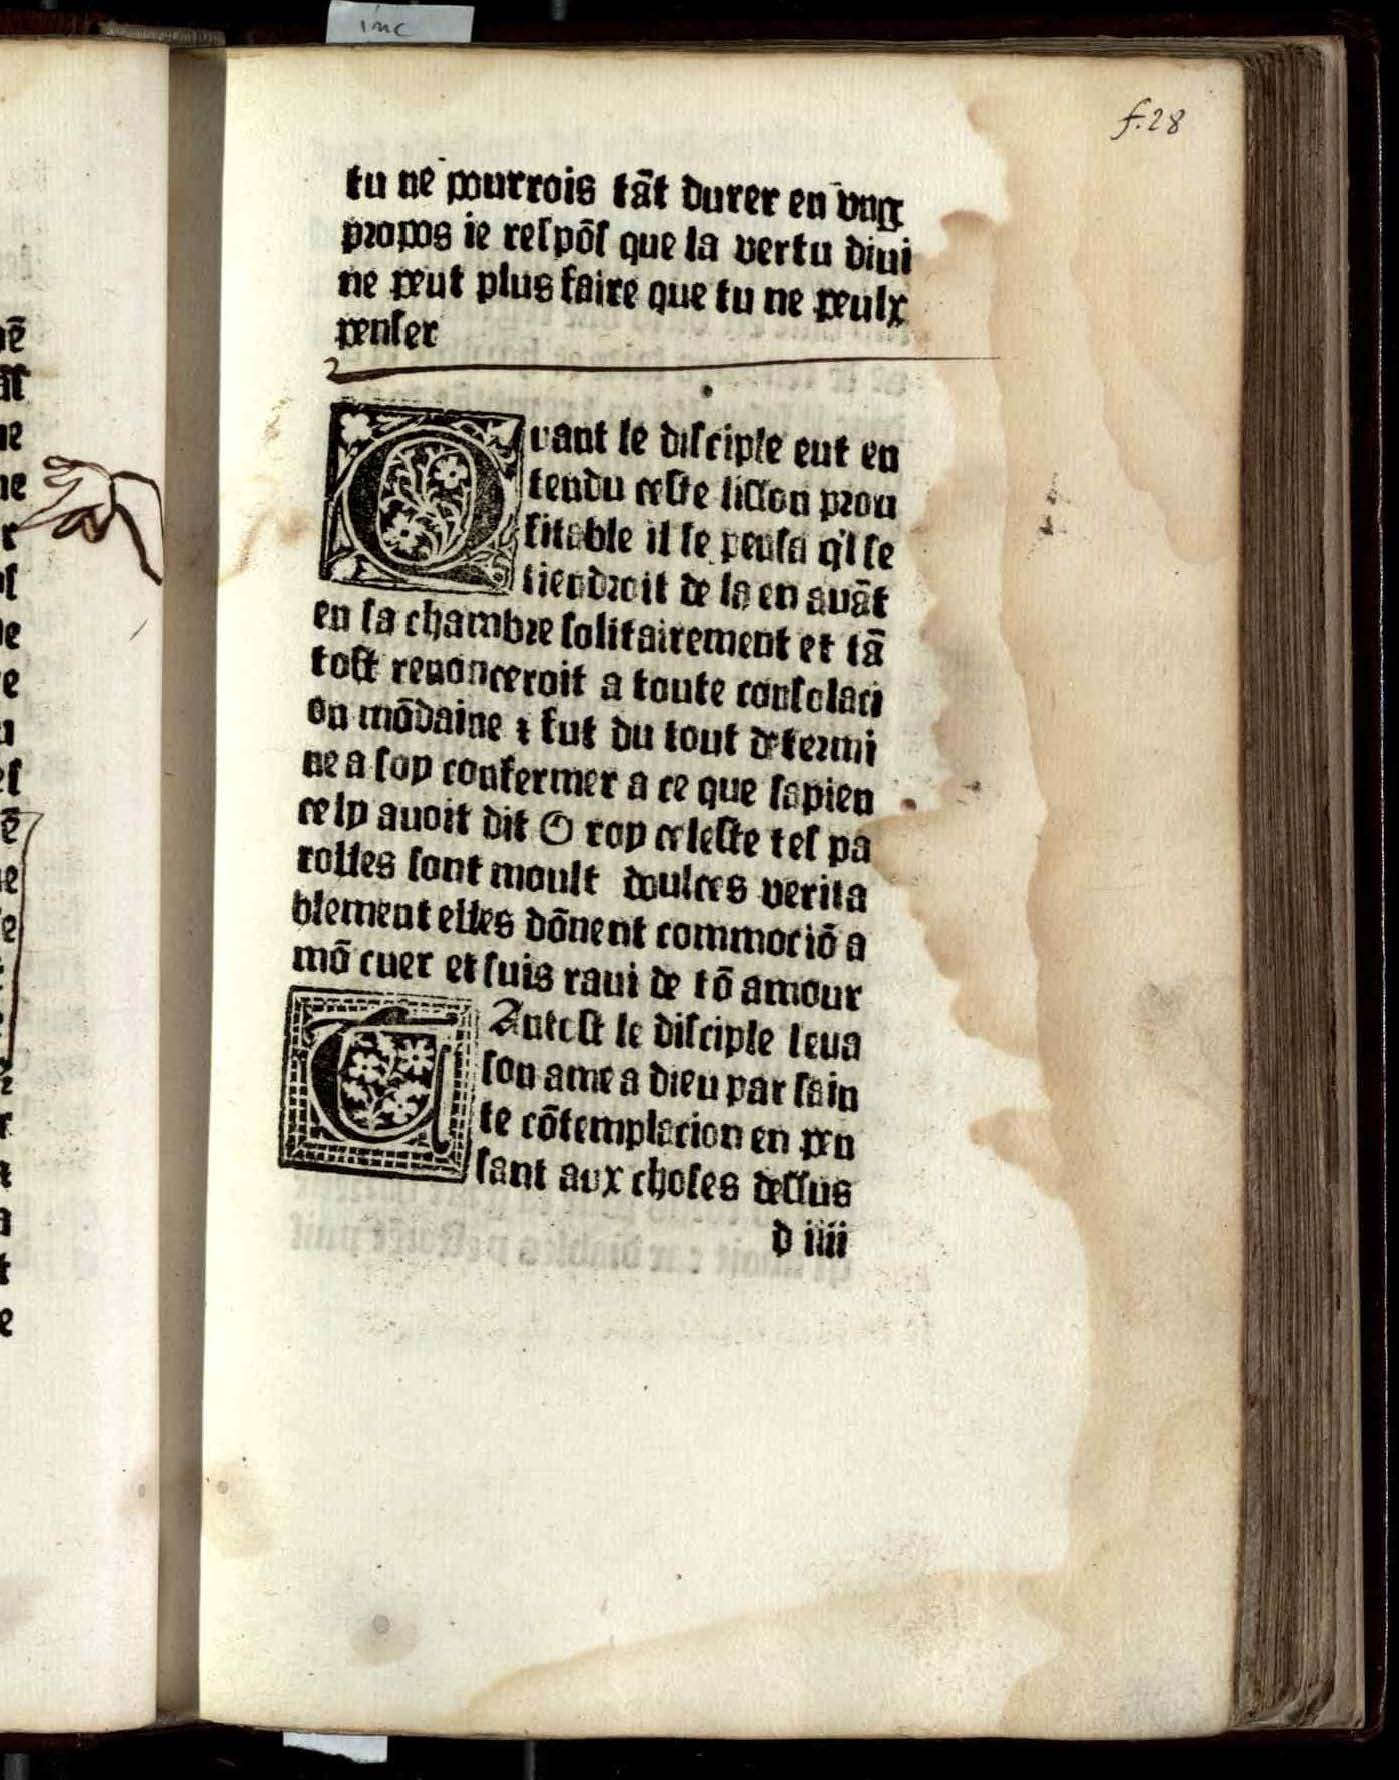 inc
f. 28
tu ne pourrois tāt durer en vng
propos ie respōs que la vertu diui
ne peut plus faire que tu ne peulx
penser
Quant le disciple eut en
tendu ceste lisson prou
fitable il se pensa q'l se
tiendroit de la en auāt
en sa chambre solitairement et tā
tost renonceroit a toute consolaci
on mōdaine ⁊ fut du tout determi
ne a soy confermer a ce que sapien
ce ly auoit dit O roy celeste tes pa
rolles sont moult doulces verita
blement elles dōnent commociō a
mō cuer et suis raui de tō amour
Tantost le disciple leua
son ame a dieu par sain
te cōtemplacion en pen
sant aux choses dessus
d iiii